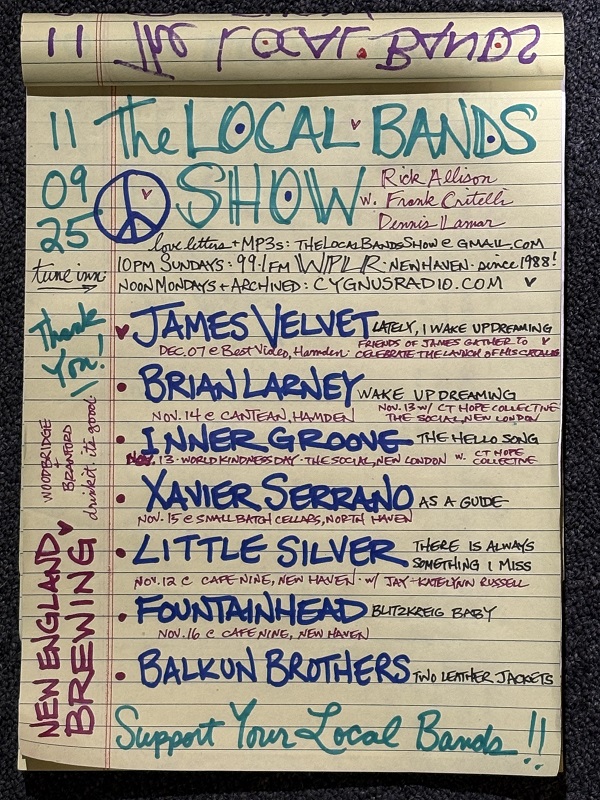 11 The LOCAL BANDS
11 The LOCAL BANDS
09 SHOW w. Rick Allison
Frank Critelli
25 Dennis Lamar
love letters + MP3s: THELOCALBANDSSHOW@GMAIL.COM
tune inn: 10PM SUNDAYS: 99.1FM WPLR · NEW HAVEN · since 1988!
NOON MONDAYS + ARCHIVED: CYGNUSRADIO.COM
Thank You!
JAMES VELVET LATELY, I WAKE UP DREAMING
DEC. 07 @ Best Video, Hamden FRIENDS OF JAMES GATHER TO
CELEBRATE THE LAUNCH OF HIS CATALOG
• BRIAN LARNEY WAKE UP DREAMING
NOV. 14 @ CANTEAN, HAMDEN NOV. 13 w/ CT HOPE COLLECTIVE
THE SOCIAL, NEW LONDON
• INNER GROOVE THE HELLO SONG
NOV. 13 · WORLD KINDNESS DAY · THE SOCIAL, NEW LONDON w. CT HOPE
COLLECTIVE
• XAVIER SERRANO AS A GUIDE
NOV. 15 @ SMALL BATCH CELLARS, NORTH HAVEN
• LITTLE SILVER THERE IS ALWAYS
SOMETHING I MISS
NOV. 12 @ CAFE NINE, NEW HAVEN · w/ JAY + KATELYNN RUSSELL
• FOUNTAINHEAD BLITZKREIG BABY
NOV. 16 @ CAFE NINE, NEW HAVEN
• BALKUN BROTHERS TWO LEATHER JACKETS
NEW ENGLAND
BREWING
WOODBRIDGE
BRANFORD
drink it its good
Support Your Local Bands!!